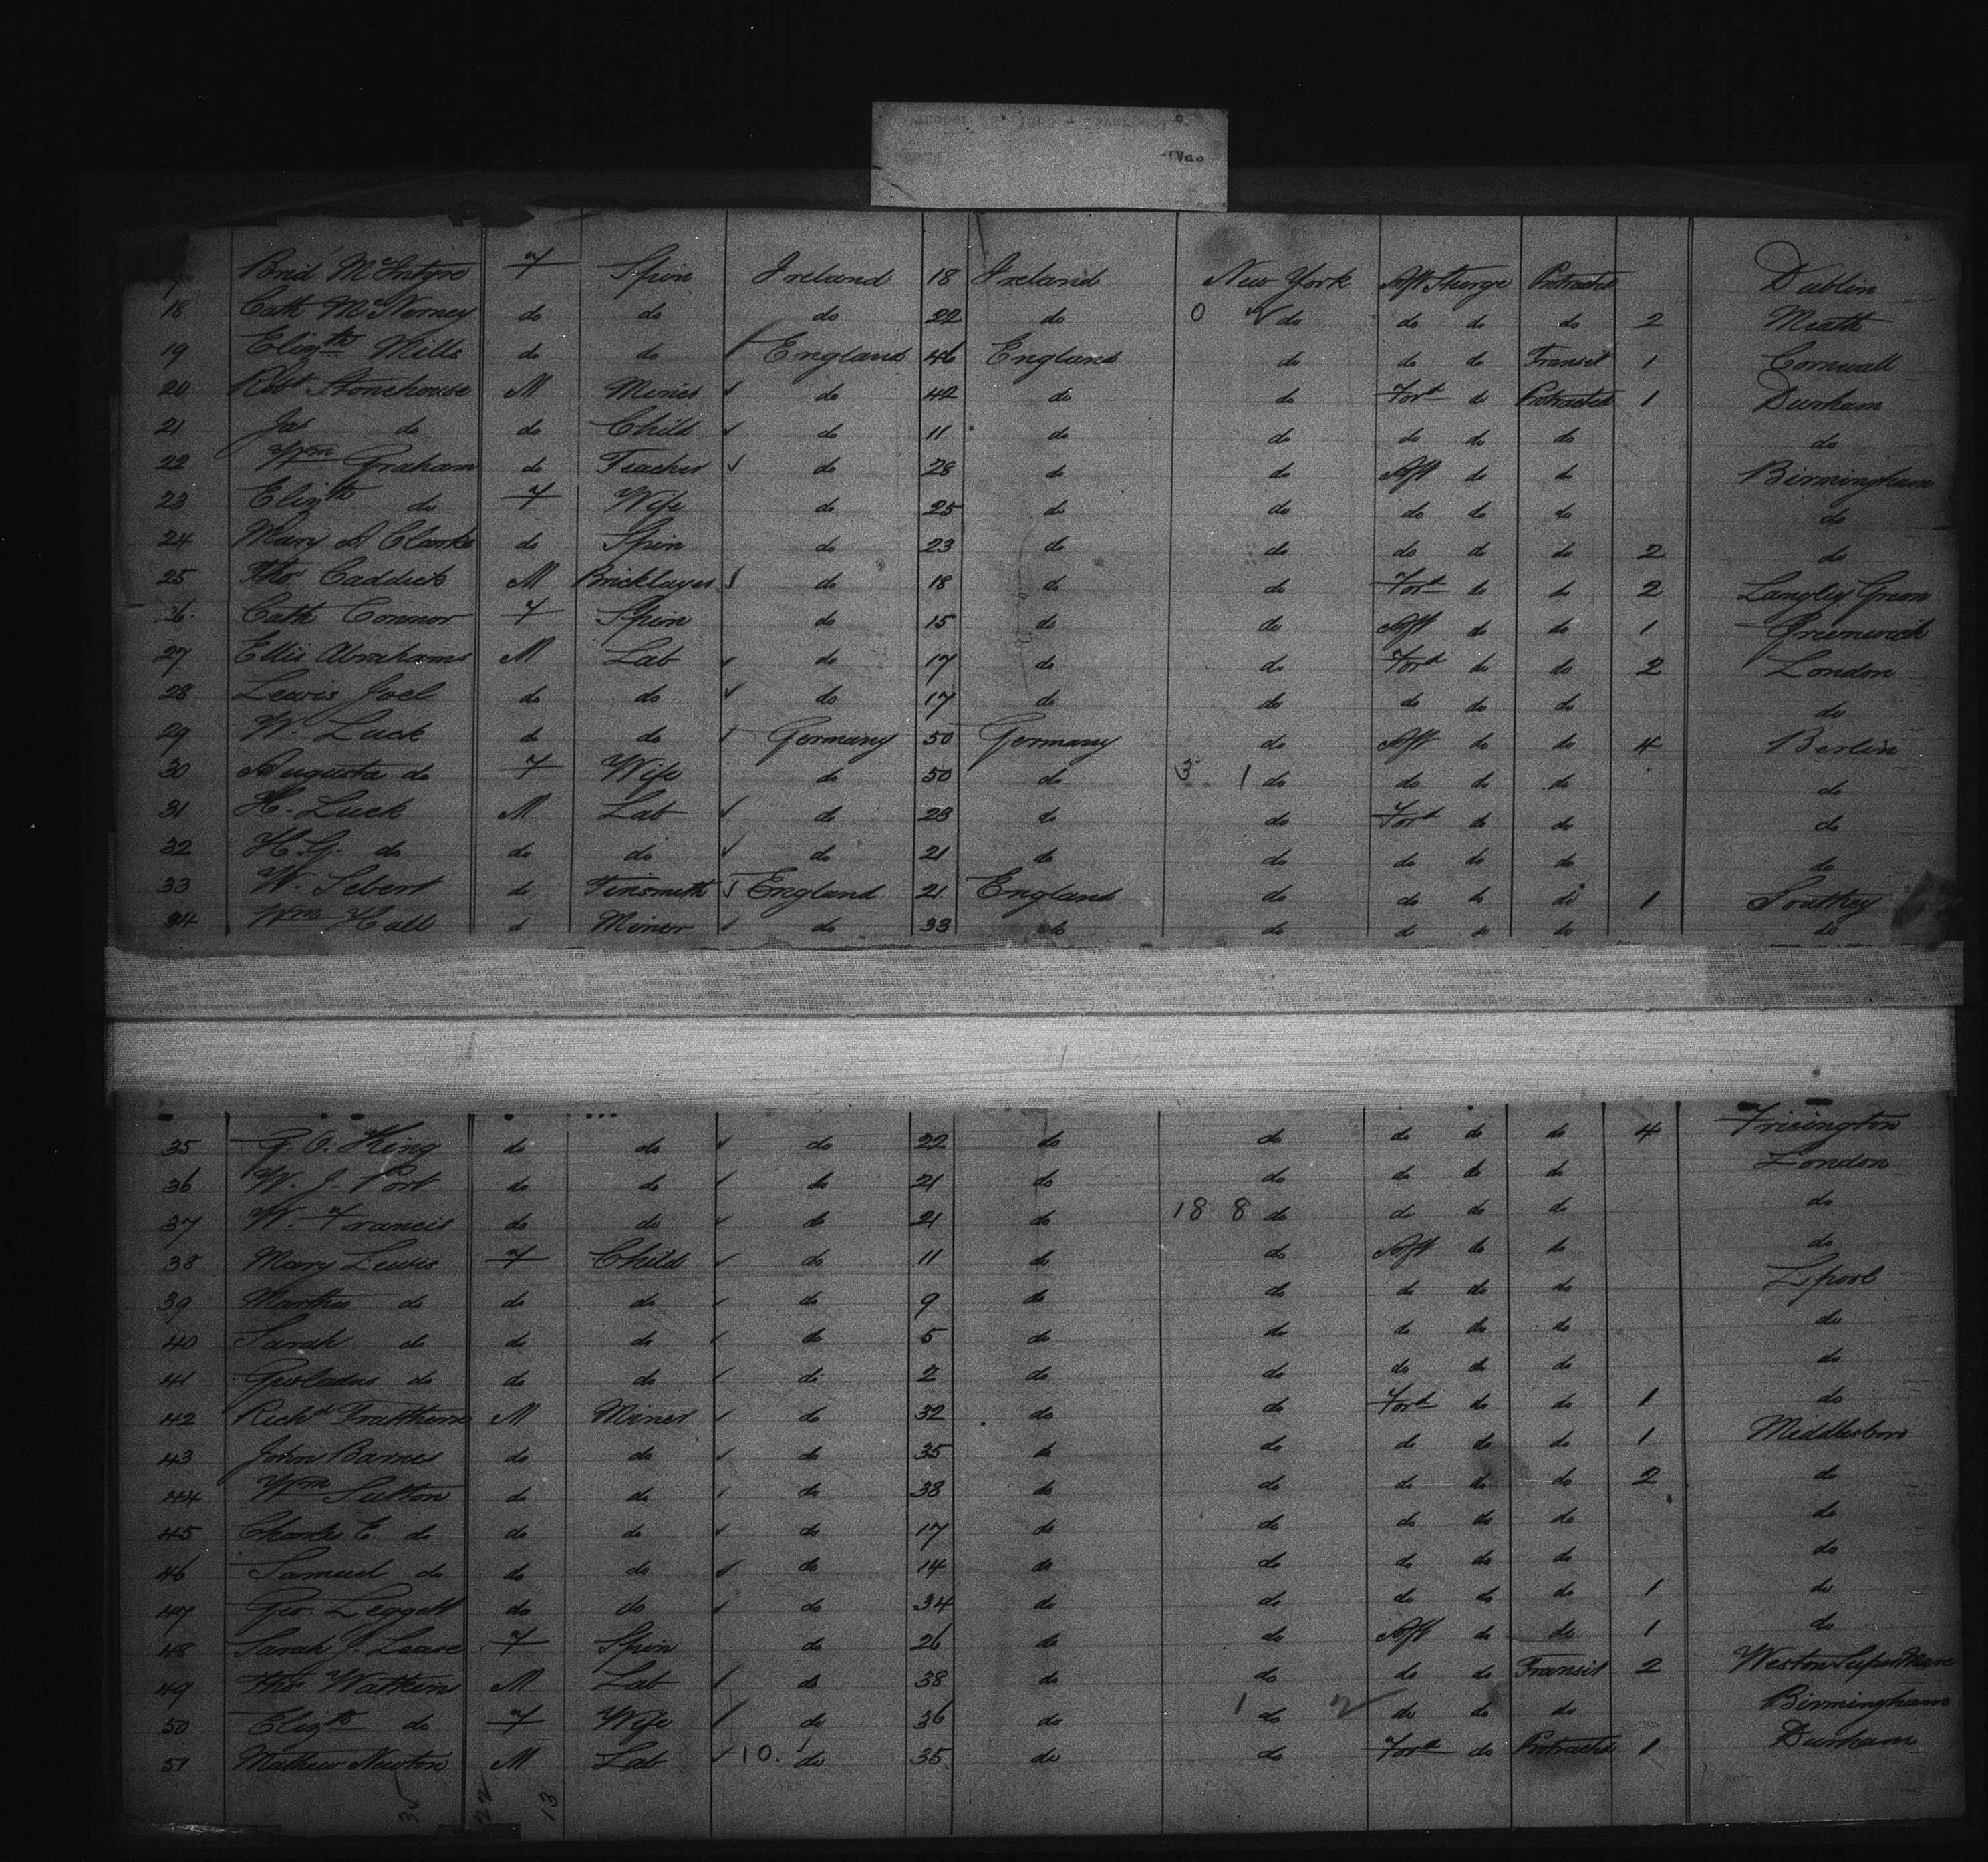 Brid McIntyre F Spin Ireland 18 Ireland New York Aft Sturge Protracted Dublin
18 Cath McNerney do do do 22 do 0 do do do do 2 Meath
19 Elizth Mills do do England 46 England do do do Transit 1 Cornwall
20 Robt Stonehouse M Miner do 42 do do Ford do Protracted 1 Durham
21 Jas do do Child do 11 do do do do do do
22 Wm Graham do Teacher do 28 do do Aft do do Birmingham
23 Elizth do F Wife do 25 do do do do do do
24 Mary A Clarke do Spin do 23 do do do do do 2 do
25 Thos Caddick M Bricklayer do 18 do do Ford do do 2 Langley Green
26 Cath Connor F Spin do 15 do do Aft do do 1 Greenwich
27 Ellis Abrahams M Lab do 17 do do Ford do do 2 London
28 Lewis Joel do do do 17 do do do do do do
29 W. Luck do do Germany 50 Germany do Aft do do 4 Berlin
30 Augusta do F Wife do 50 do 3 1 do do do do do
31 H. Luck M Lab do 23 do do Ford do do do
32 H.G. do do do do 21 do do do do do do
33 W. Sebert do Tinsmith England 21 England do do do do 1 Southey
34 Wm Hall do Miner do 33 do do do do do do
35 G O. King do do do 22 do do do do do 4 Tricington
36 W. J. Port do do do 21 do do do do do London
37 W. Francis do do do 21 do 18 8 do do do do do
38 Mary Lewis F Child do 11 do do Aft do do do
39 Martha do do do do 9 do do do do do Lpool
40 Sarah do do do do 5 do do do do do do
41 do do do do 2 do do do do do do
42 Richd M Miner do 32 do do Ford do do 1 do
43 John Barnes do do do 35 do do do do do 1 Middlesboro
44 Wm Sutton do do do 38 do do do do do 2 do
45 Charles E. do do do do 17 do do do do do do
46 Samuel do do do do 14 do do do do do do
47 Geo. Leggett do do do 34 do do do do do 1 do
48 Sarah J. Lease F Spin do 26 do do Aft do do 1 do
49 Thos Watkins M Lab do 38 do do do do Transit 2 Weston Super Mare
50 Elizth do F Wife do 36 do 1 do 2 do do do Birmingham
51 Mathew Newton M Lab 10. do 35 do do Ford do Protracted 1 Durham
22 13